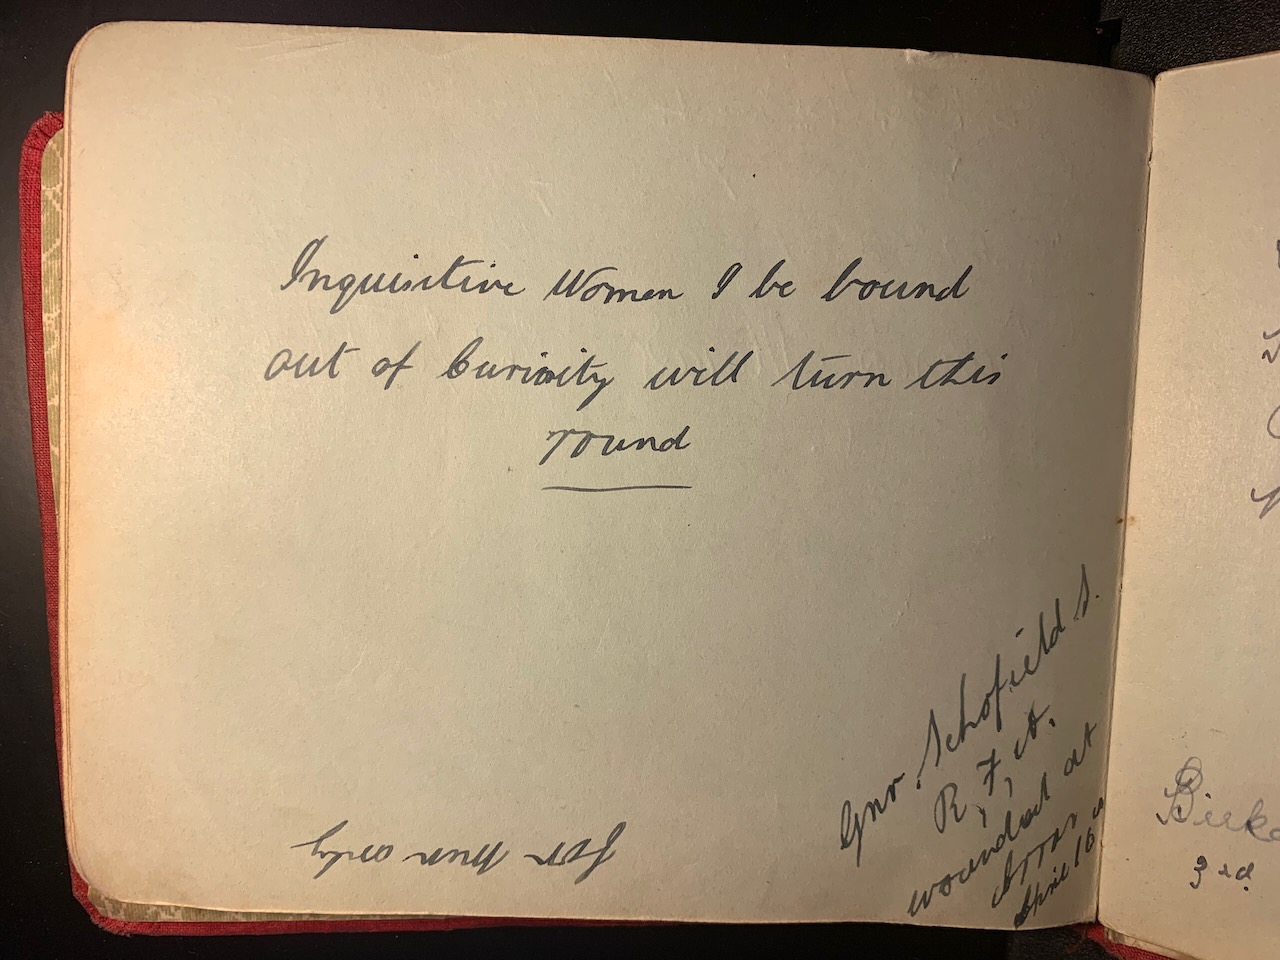 Inquisitive Women I be bound
out of Curiosity will turn this
round
For Men only
Gnr. Schofield S.
R, F, A.
wounded at
April 16
Birke
3rd